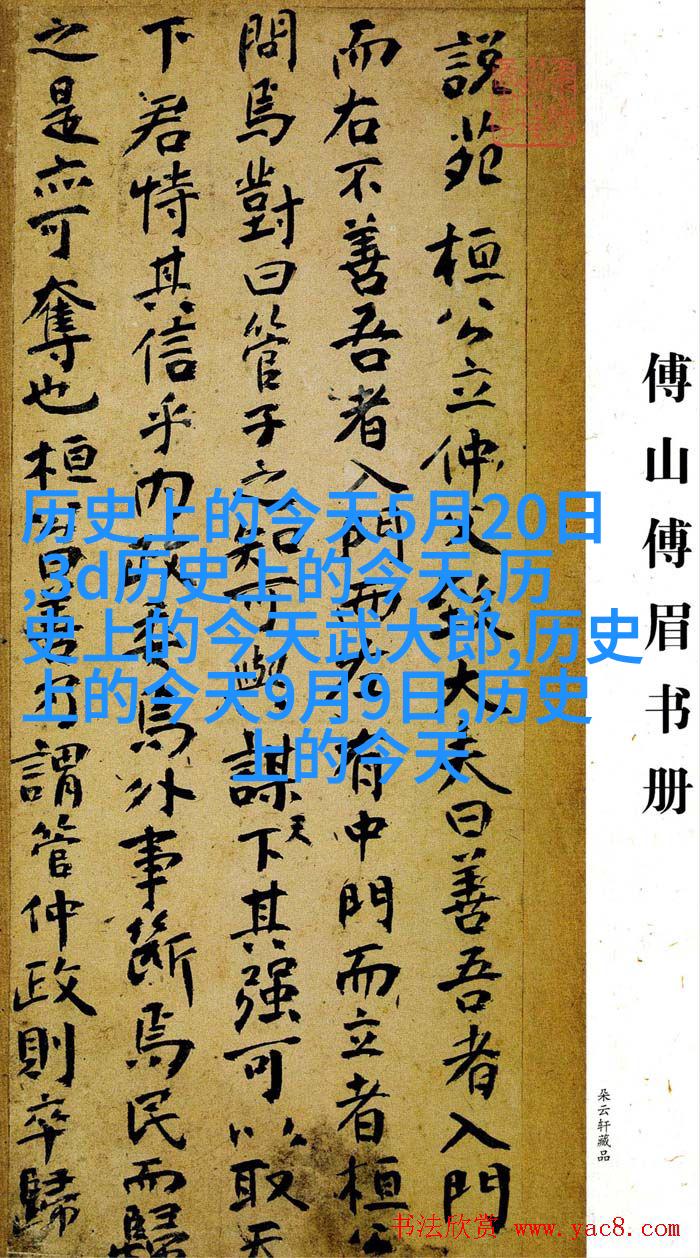 説苑 桓公立仲父大夫曰善吾者入門
而右不善吾者入門而左有中門而立者桓公
問焉對曰管子之知可與謀天下其强可以取天
下君恃其信乎内政委焉外事斷焉民而歸
之是亦可奪也桓公曰善乃謂管仲政則卒歸
傅山傅眉书册
朵云轩藏品
历史上的今天5月20日
,3d历史上的今天,历
史上的今天武大郎,历史
上的今天9月9日,历史
上的今天
书法欣赏 www.yac8.com